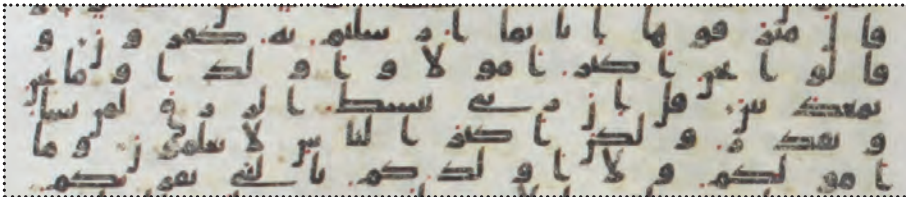 قال مترفوها انا بما ارسلتم به كفرون و
قالوا نحن اكثر امولا واولدا وما نحن
بمعذبين قل ان ربي يبسط الرزق لمن يشا
ويقدر ولكن اكثر الناس لا يعلمون وما
امولكم ولا اولدكم بالتي تقربكم